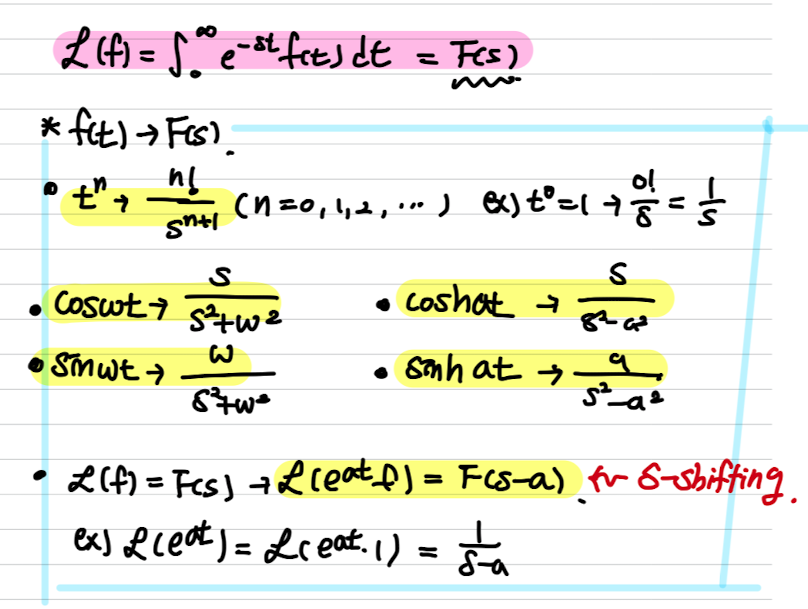 ℒ(f) = ∫₀^∞ e^(-st) f(t) dt = F(s)
* f(t) → F(s).
• tⁿ → n!/s^(n+1) (n = 0, 1, 2, ⋯) ex) t⁰ = 1 → 0!/s = 1/s
• coswt → s/(s²+w²) • coshat → s/(s²-a²)
• sinwt → w/(s²+w²) • sinh at → a/(s²-a²)
• ℒ(f) = F(s) → ℒ(e^(at) f) = F(s-a). for s-shifting.
ex) ℒ(e^(at)) = ℒ(e^(at)·1) = 1/(s-a)